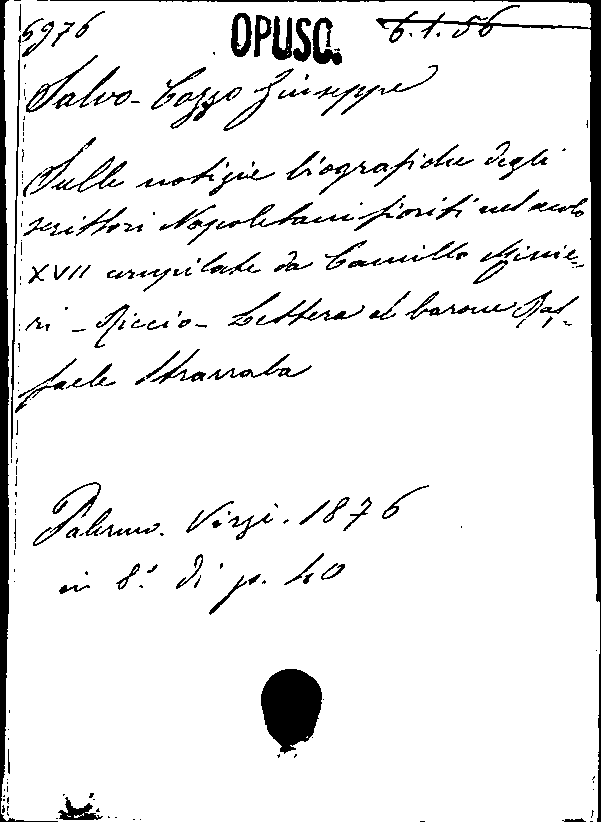 5976 OPUSC. 6.1.56
Salvo-Cozzo Giuseppe
Sulle notizie biografiche degli
scrittori Napoletani fioriti nel secolo
XVII compilate da Camillo Minie-
ri - Riccio - Lettera al barone Raf-
faele Starrabba
Palermo. Virzì. 1876
in 8.° di p. 40